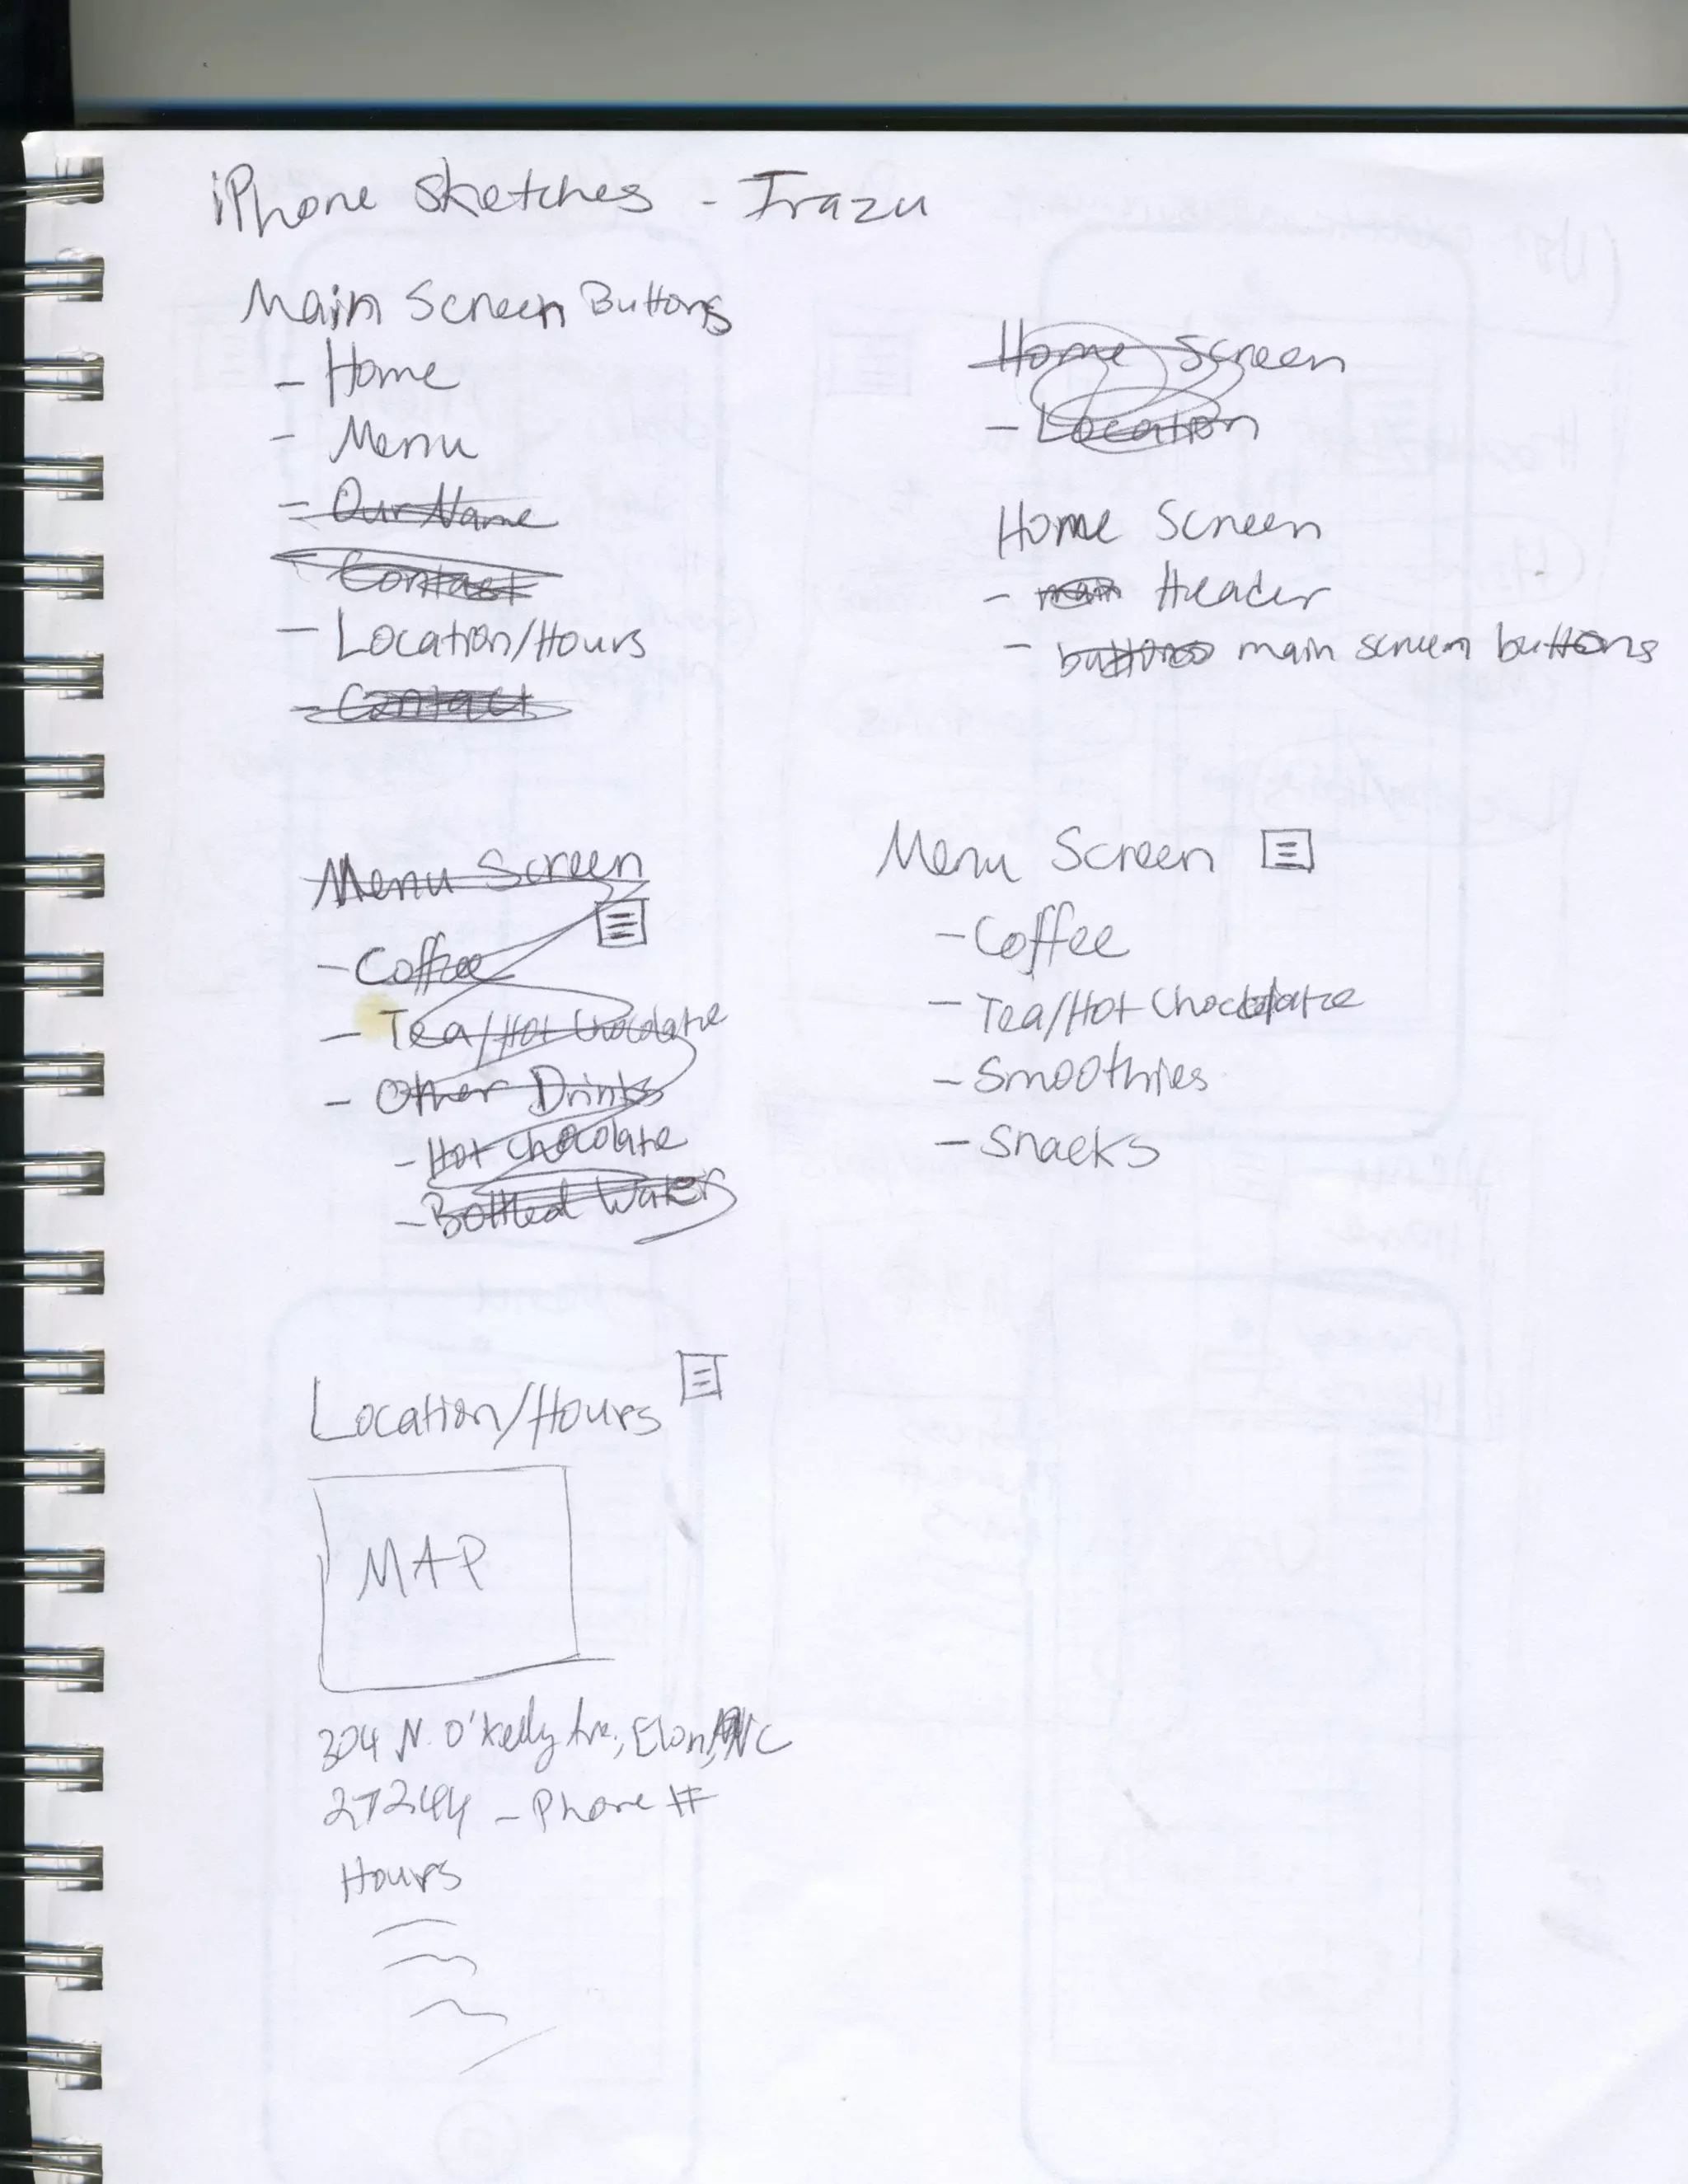 iPhone Sketches - Irazu
Main Screen Buttons
- Home
- Menu
- Our Name
- Contact
- Location/Hours
- Contact
Home Screen
- Location
Home Screen
- main Header
- buttons main screen buttons
Menu Screen
- Coffee
- Tea/Hot Chocolate
- Other Drinks
- Hot Chocolate
- Bottled Water
Menu Screen
- Coffee
- Tea/Hot Chocolate
- Smoothies
- Snacks
Location/Hours
MAP
304 N. O'Kelly Ave., Elon, NC
27244 - Phone #
Hours